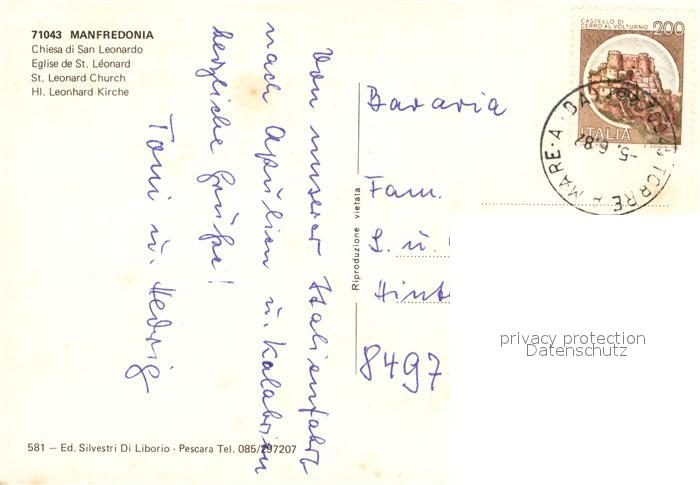 71043 MANFREDONIA
Chiesa di San Leonardo
Eglise de St. Léonard
St. Leonard Church
Hl. Leonhard Kirche
Von unserer Italienfahrt
nach Apulien u. Kalabrien
herzliche Grüße!
Toni u. Hedwig
581 – Ed. Silvestri Di Liborio - Pescara Tel. 085/297207
Riproduzione vietata
CASTELLO DI
CERRO AL VOLTURNO
200
ITALIA
TORRE A MARE
5.6.87
Bavaria
Fam.
S. u.
Hint
8497
privacy protection
Datenschutz